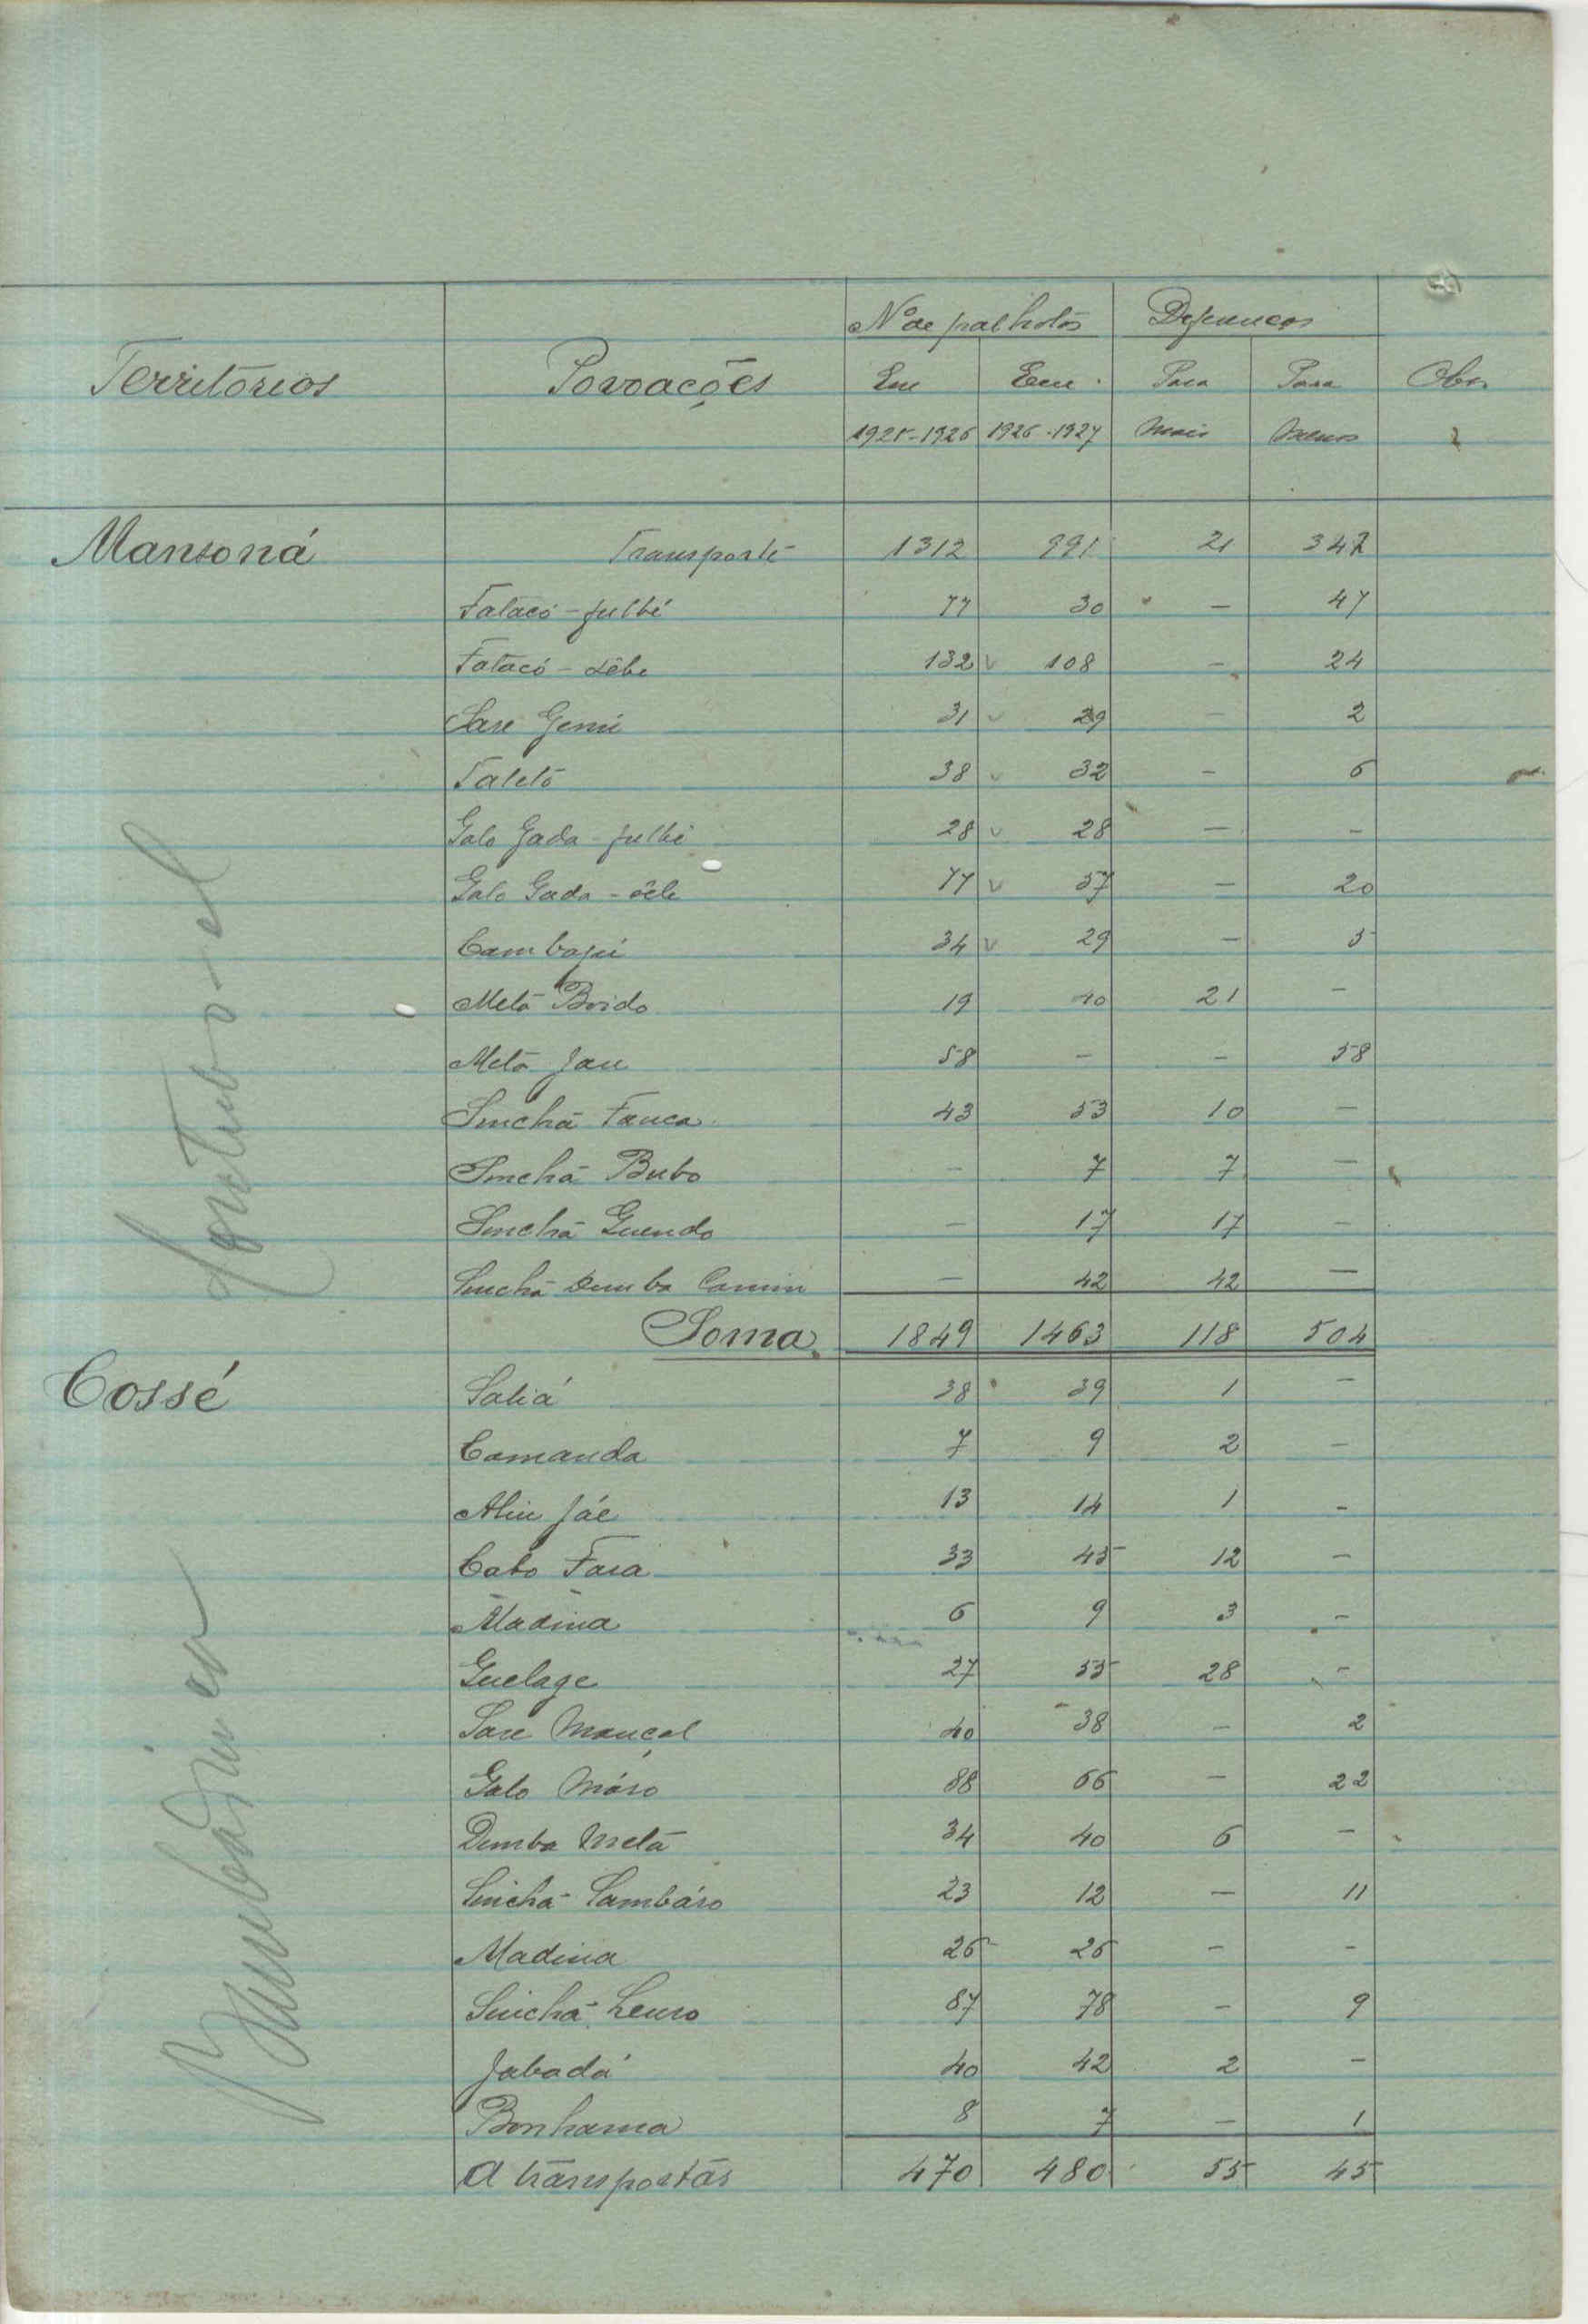 Nº de palhotas Diferenças
Territórios Povoações Em Em Para Para Obs.
1925-1926 1926-1927 Mais Menos
Mansoná Transporte 1312 991 21 342
Fatacó - fulbé 77 30 — 47
Fatacó - dêbe 132 108 — 24
Sare Geniè 31 29 — 2
Taletó 38 32 — 6
Galo Gada - fulbé 28 28 — —
Galo Gada - 77 57 — 20
Cambajú 34 29 — 5
Metá Boido 19 40 21 —
Metá Jau 58 — — 58
Sinchã Fanca 43 53 10 —
Sinchã Bubo — 7 7 —
Sinchã Guendo — 17 17 —
Sinchã Demba — 42 42 —
Soma 1849 1463 118 504
Cossé Saliá 38 39 1 —
Camanda 7 9 2 —
Aliu Jáe 13 14 1 —
Cabo Fara 33 45 12 —
Madina 6 9 3 —
Guelage 27 55 28 —
Sare Mançal 40 38 — 2
Galo Máro 88 66 — 22
Demba Metá 34 40 6 —
Sinchã Sambáro 23 12 — 11
Madina 26 26 — —
Sinchã Leuro 87 78 — 9
Jabadá 40 42 2 —
Bonhama 8 7 — 1
A transportar 470 480 55 45
Sontubo-el